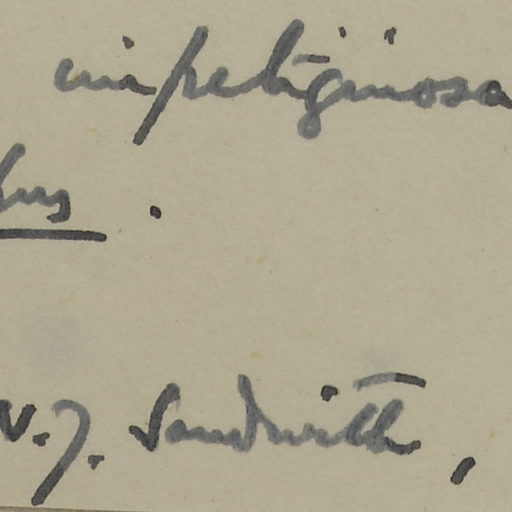 impetiginosa
N. Y. Sandwith,